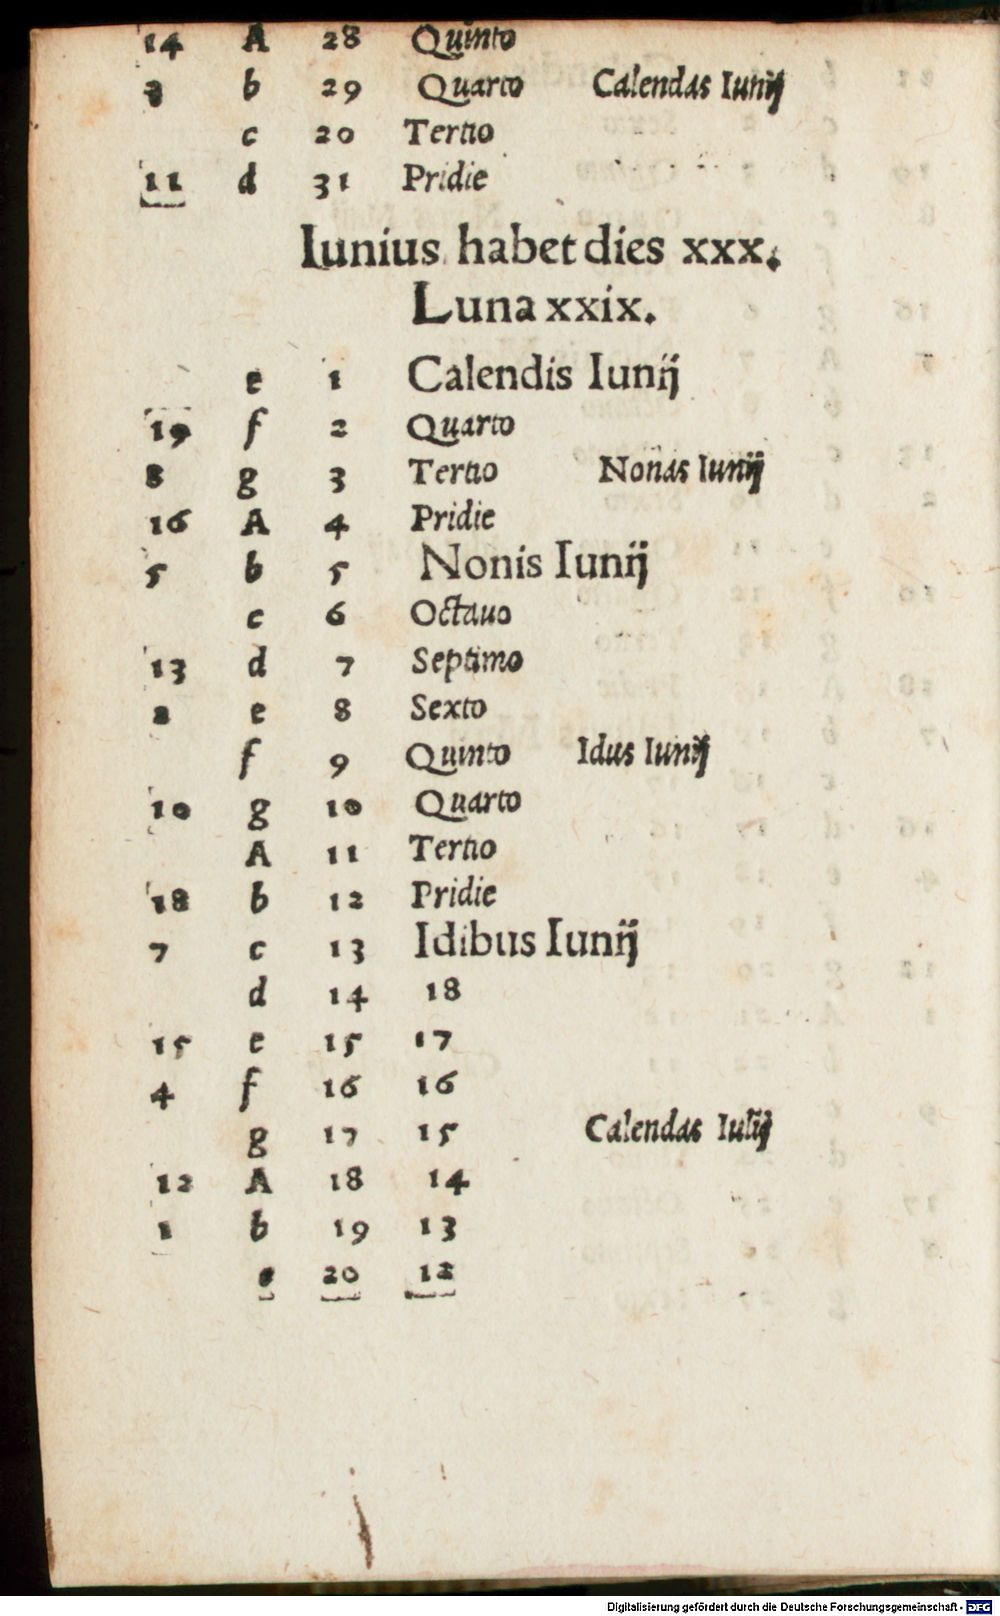 14 A 28 Quinto
3 b 29 Quarto Calendas Iunij
c 20 Tertio
11 d 31 Pridie
Iunius habet dies xxx.
Luna xxix.
e 1 Calendis Iunij
19 f 2 Quarto
8 g 3 Tertio Nonas Iunij
16 A 4 Pridie
5 b 5 Nonis Iunij
c 6 Octauo
13 d 7 Septimo
2 e 8 Sexto
f 9 Quinto Idus Iunij
10 g 10 Quarto
A 11 Tertio
18 b 12 Pridie
7 c 13 Idibus Iunij
d 14 18
15 e 15 17
4 f 16 16
g 17 15 Calendas Iulij
12 A 18 14
1 b 19 13
c 20 12
Digitalisierung gefördert durch die Deutsche Forschungsgemeinschaft - DFG